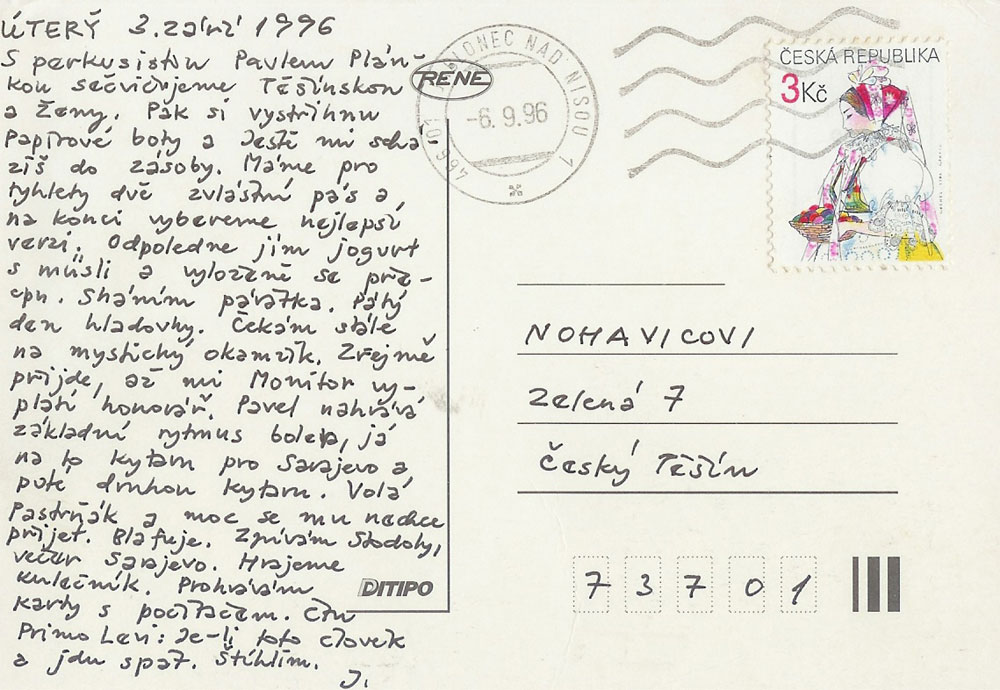 ÚTERÝ 3. září 1996
S perkusistou Pavlem Plán-
kou secvičujeme Těšínskou
a Ženy. Pak si vystřihnu
Papírové boty a Ještě mi schá-
zíš do zásoby. Máme pro
tyhlety dvě zvláštní pás a,
na konci vybereme nejlepší
verzi. Odpoledne jím jogurt
s müsli a vyloženě se pře-
cpu. Sháním párátka. Pátý
den hladovky. Čekám stále
na mystický okamžik. Zřejmě
přijde, až mi Monitor vy-
platí honorář. Pavel nahrává
základní rytmus bolera, já
na to kytaru pro Sarajevo a
poté druhou kytaru. Volá
Pastrňák a moc se mu nechce
přijet. Blafuje. Zpívám Stodoly,
večer Sarajevo. Hrajeme
kulečník. Prohrávám
karty s počítačem. Čtu
Primo Levi: Je-li toto člověk
a jdu spat. Štíhlím.
J.
RENE
DITIPO
LONEC NAD NISOU 1
-6.9.96
466 01
ČESKÁ REPUBLIKA
3Kč
NOHAVICOVI
Zelená 7
Český Těšín
7 3 7 0 1